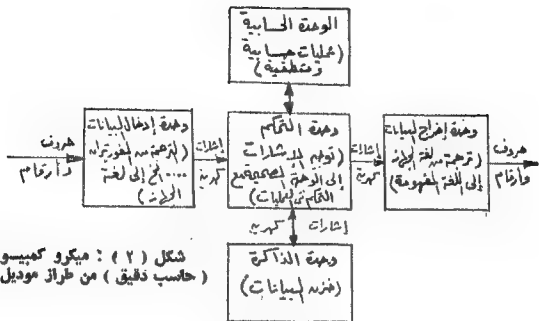 الوحدة الحسابية
(عمليات حسابية
ومنطقية)
حروف
وأرقام
وحدة إدخال البيانات
(ترجمة من الفورتران
.... الخ إلى لغة
الجهاز)
إشارات
كهربية
وحدة التحكم
(توجه الإشارات
إلى الوحدة الصحيحة مع
التحكم في العمليات)
إشارات
كهربية
وحدة إخراج البيانات
(ترجمة من لغة الجهاز
إلى اللغة المفهومة)
حروف
وأرقام
إشارات كهربية
وحدة الذاكرة
(خزن البيانات)
شكل (٢) : ميكرو كمبيسو
(حاسب دقيق) من طراز موديل